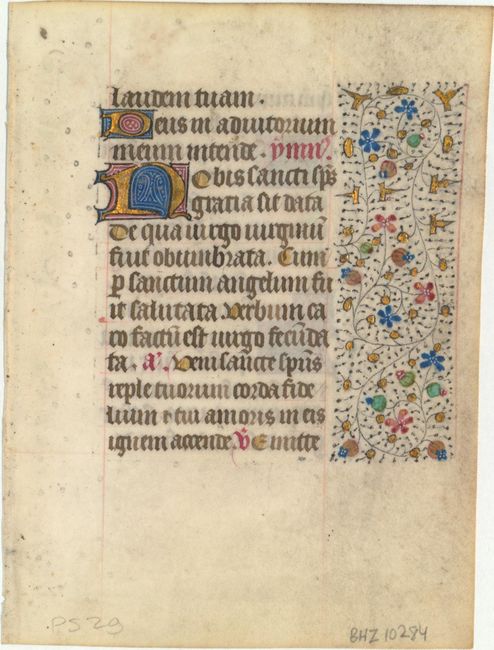 laudem tuam.
Deus in adiutorium
meum intende. ymnus.
Nobis sancti sp̄s
gratia sit data
De qua uirgo uirginū
fuit obumbrata. Cum
ꝑ sanctum angelum fu
it salutata. Verbum ca
ro factū est uirgo fecunda
ta. añ. Veni sancte sp̄us
reple tuorum corda fide
lium ⁊ tui amoris in eis
ignem accende. ℣ Emitte
PS29
BHZ10284